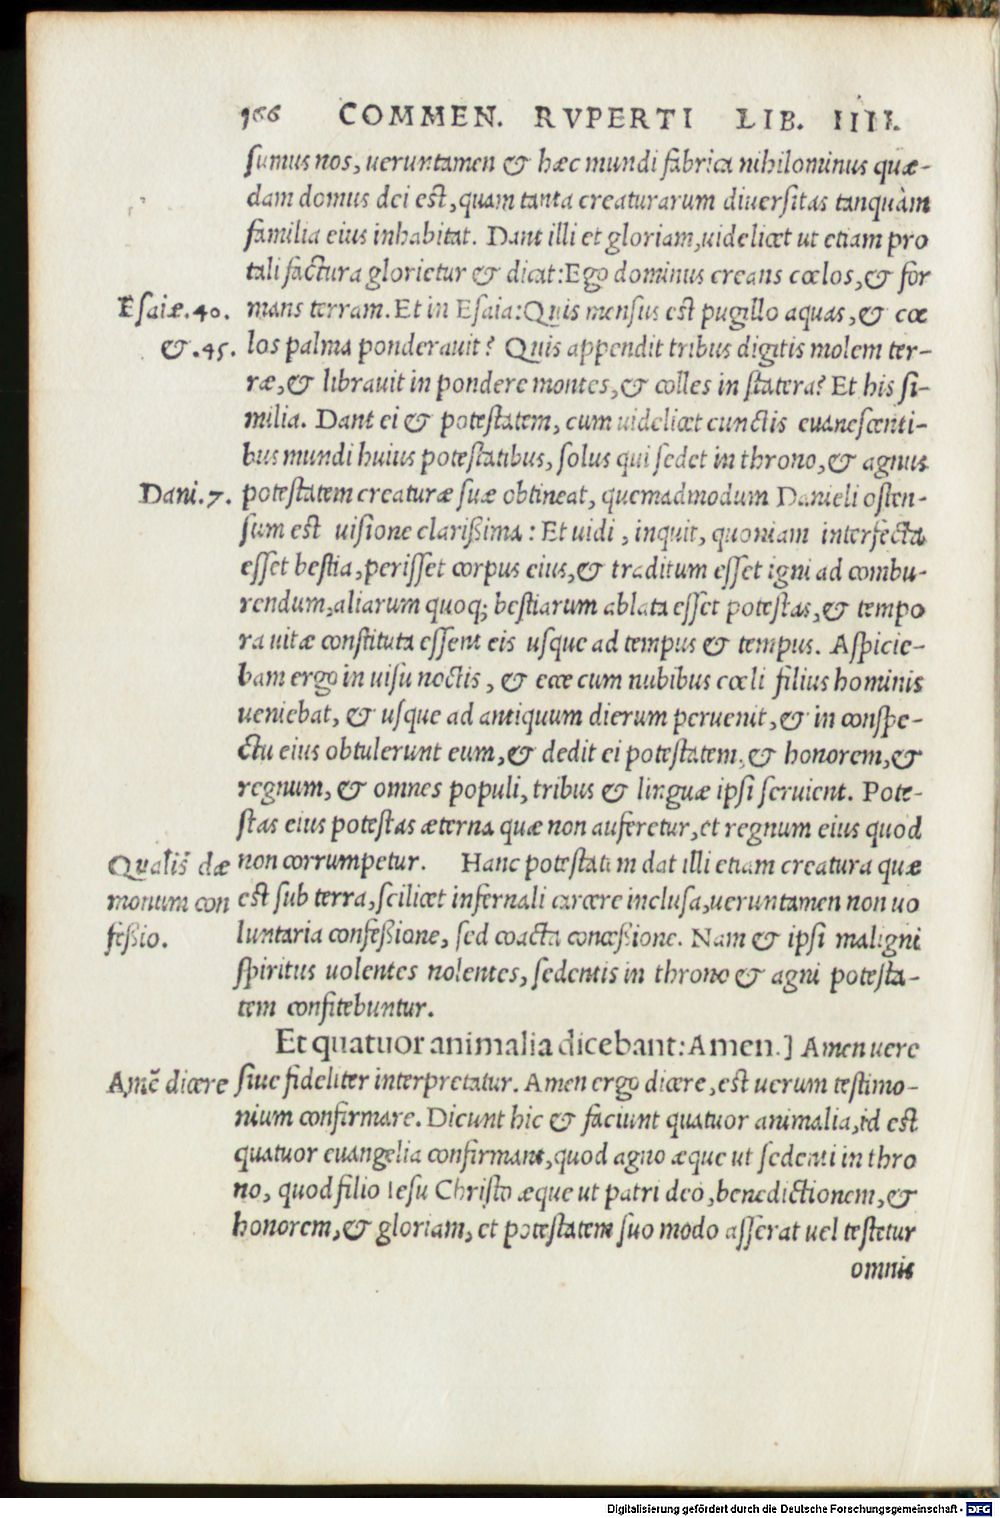 166 COMMEN. RVPERTI LIB. IIII.
sumus nos, ueruntamen & hæc mundi fabrica nihilominus quæ-
dam domus dei est, quam tanta creaturarum diuersitas tanquàm
familia eius inhabitat. Dant illi et gloriam, uidelicet ut etiam pro
tali factura glorietur & dicat: Ego dominus creans cœlos, & for
Esaiæ. 40. mans terram. Et in Esaia: Quis mensus est pugillo aquas, & cœ
&. 45. los palma ponderauit? Quis appendit tribus digitis molem ter-
ræ, & librauit in pondere montes, & colles in statera? Et his si-
milia. Dant ei & potestatem, cum uidelicet cunctis euanescenti-
bus mundi huius potestatibus, solus qui sedet in throno, & agnus
Dani. 7. potestatem creaturæ suæ obtineat, quemadmodum Danieli osten-
sum est uisione clarißima: Et uidi, inquit, quoniam interfecta
esset bestia, perisset corpus eius, & traditum esset igni ad combu-
rendum, aliarum quoq; bestiarum ablata esset potestas, & tempo
ra uitæ constituta essent eis usque ad tempus & tempus. Aspicie-
bam ergo in uisu noctis, & ecce cum nubibus cœli filius hominis
ueniebat, & usque ad antiquum dierum peruenit, & in conspe-
ctu eius obtulerunt eum, & dedit ei potestatem, & honorem, &
regnum, & omnes populi, tribus & linguæ ipsi seruient. Pote-
stas eius potestas æterna quæ non auferetur, et regnum eius quod
Qualis dæ non corrumpetur. Hanc potestatem dat illi etiam creatura quæ
monum con est sub terra, scilicet infernali carcere inclusa, ueruntamen non uo
feßio. luntaria confeßione, sed coacta conceßione. Nam & ipsi maligni
spiritus uolentes nolentes, sedentis in throno & agni potesta-
tem confitebuntur.
Et quatuor animalia dicebant: Amen.] Amen uere
Amē dicere siue fideliter interpretatur. Amen ergo dicere, est uerum testimo-
nium confirmare. Dicunt hic & faciunt quatuor animalia, id est
quatuor euangelia confirmant, quod agno æque ut sedenti in thro
no, quod filio Iesu Christo æque ut patri deo, benedictionem, &
honorem, & gloriam, et potestatem suo modo asserat uel testetur
omnis
Digitalisierung gefördert durch die Deutsche Forschungsgemeinschaft - DFG